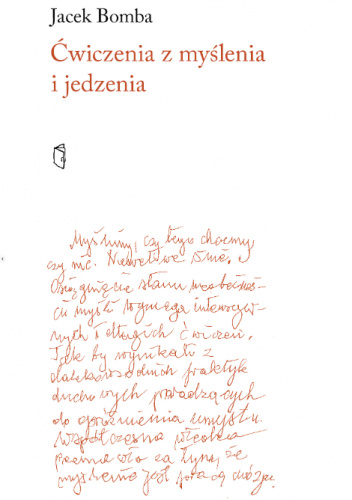 Jacek Bomba
Ćwiczenia z myślenia
i jedzenia
Myślimy, czy tego chcemy,
czy nie. Nawet we śnie.
Osiągnięcie stanu nieobecnoś-
ci myśli wymaga intensyw-
nych i długich ćwiczeń.
Jak by wynikało z
dalekowschodnich praktyk
duchowych prowadzących
do opróżnienia umysłu.
Współczesna wiedza
za tym, że
myślenie jest pracą mózgu.